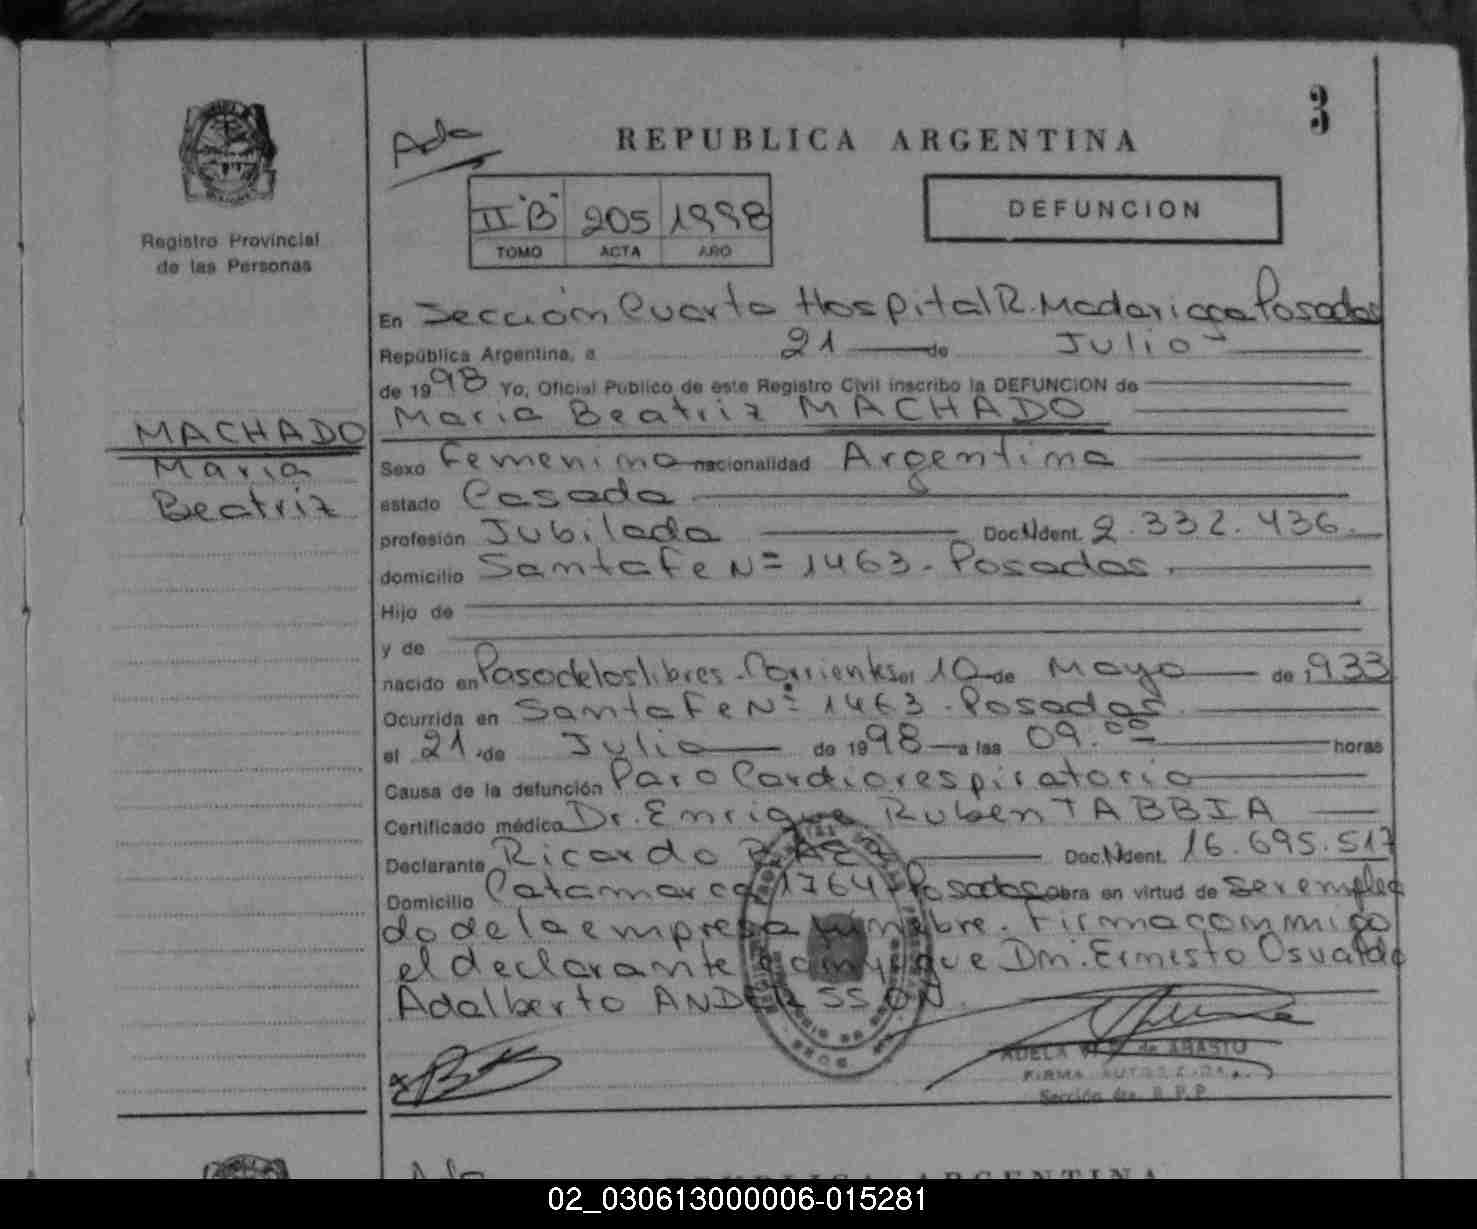 3
Ada
REPUBLICA ARGENTINA
II "B" 205 1998
TOMO ACTA AÑO
DEFUNCION
Registro Provincial
de las Personas
En Sección Cuarta Hospital R. Madariaga Posadas
República Argentina, a 21 de Julio
de 1998 Yo, Oficial Público de este Registro Civil inscribo la DEFUNCION de
Maria Beatriz MACHADO
MACHADO
Maria
Beatriz
Sexo Femenino nacionalidad Argentina
estado Casada
profesión Jubilada Doc. Ident. 2.332.436.
domicilio Santa Fe Nº 1463. Posadas.
Hijo de
y de
nacido en Paso de los libres. Corrientes el 10 de Mayo de 1933
Ocurrida en Santa Fe Nº 1463. Posadas.
el 21 de Julio de 1998 a las 09.00 horas
Causa de la defunción Paro Cardiorespiratorio
Certificado médico Dr. Enrique Ruben TABBIA
Declarante Ricardo Doc. Ident. 16.695.517
Domicilio Catamarca 1764 Posadas obra en virtud de ser emplea
do de la empresa fúnebre. Firma conmigo
el declarante que Dn. Ernesto Osvaldo
Adalberto ANDERSSON.
ADELA de ABASTO
FIRMA AUTORIZADA
Sección 4ta. R.P.P.
Ada
REPUBLICA ARGENTINA
02_030613000006-015281